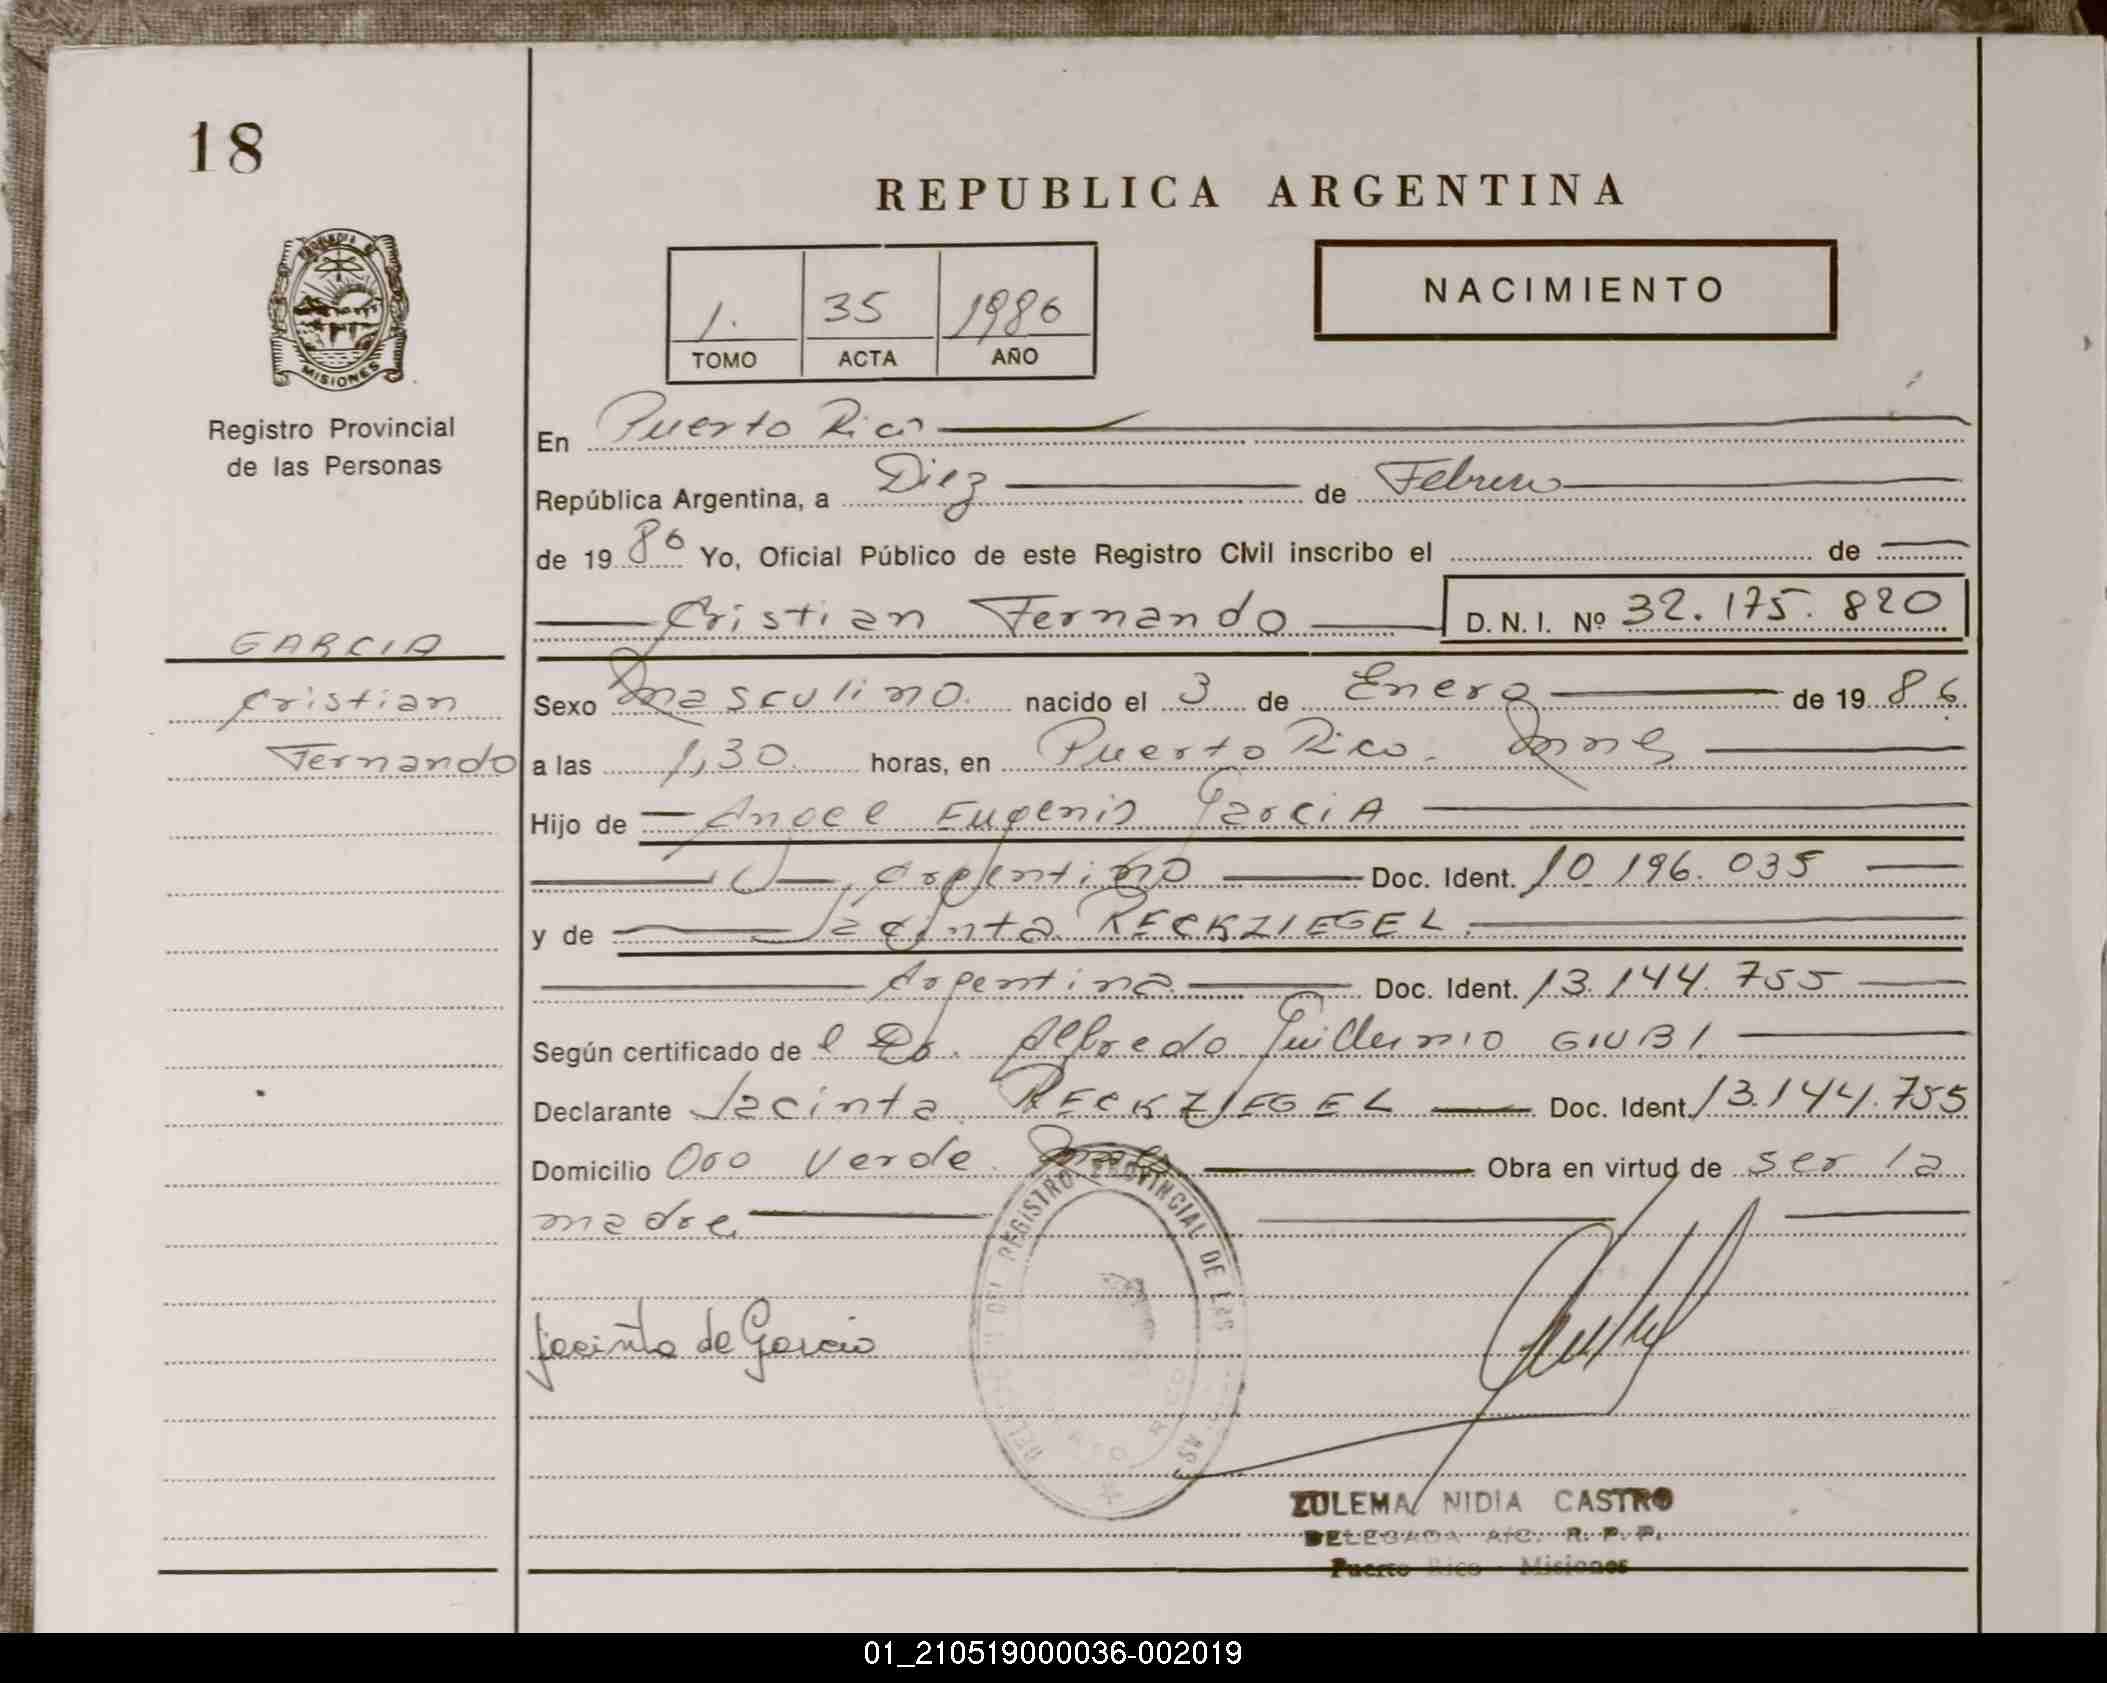 18
REPUBLICA ARGENTINA
NACIMIENTO
1. 35 1986
TOMO ACTA AÑO
MISIONES
Registro Provincial
de las Personas
En Puerto Rico
República Argentina, a Diez de Febrero
de 1986 Yo, Oficial Público de este Registro Civil inscribo el de
Cristian Fernando D. N. I. Nº 32.175.820
GARCIA
Cristian
Fernando
Sexo Masculino. nacido el 3 de Enero de 1986.
a las 1,30. horas, en Puerto Rico. Mnes
Hijo de Angel Eugenio Garcia
Argentino Doc. Ident. 10.196.035
y de Jacinta RECKZIEGEL.
Argentina Doc. Ident. 13.144.755
Según certificado de l Dr. Alfredo Guillermo GIUBI
Declarante Jacinta RECKZIEGEL Doc. Ident. 13.144.755
Domicilio Oro Verde. Obra en virtud de ser la
madre
DEL REGISTRO PROVINCIAL DE LAS
Jacinta de Garcia
ZULEMA NIDIA CASTRO
DELEGADA A/C. R. P. P.
Puerto Rico - Misiones
01_210519000036-002019